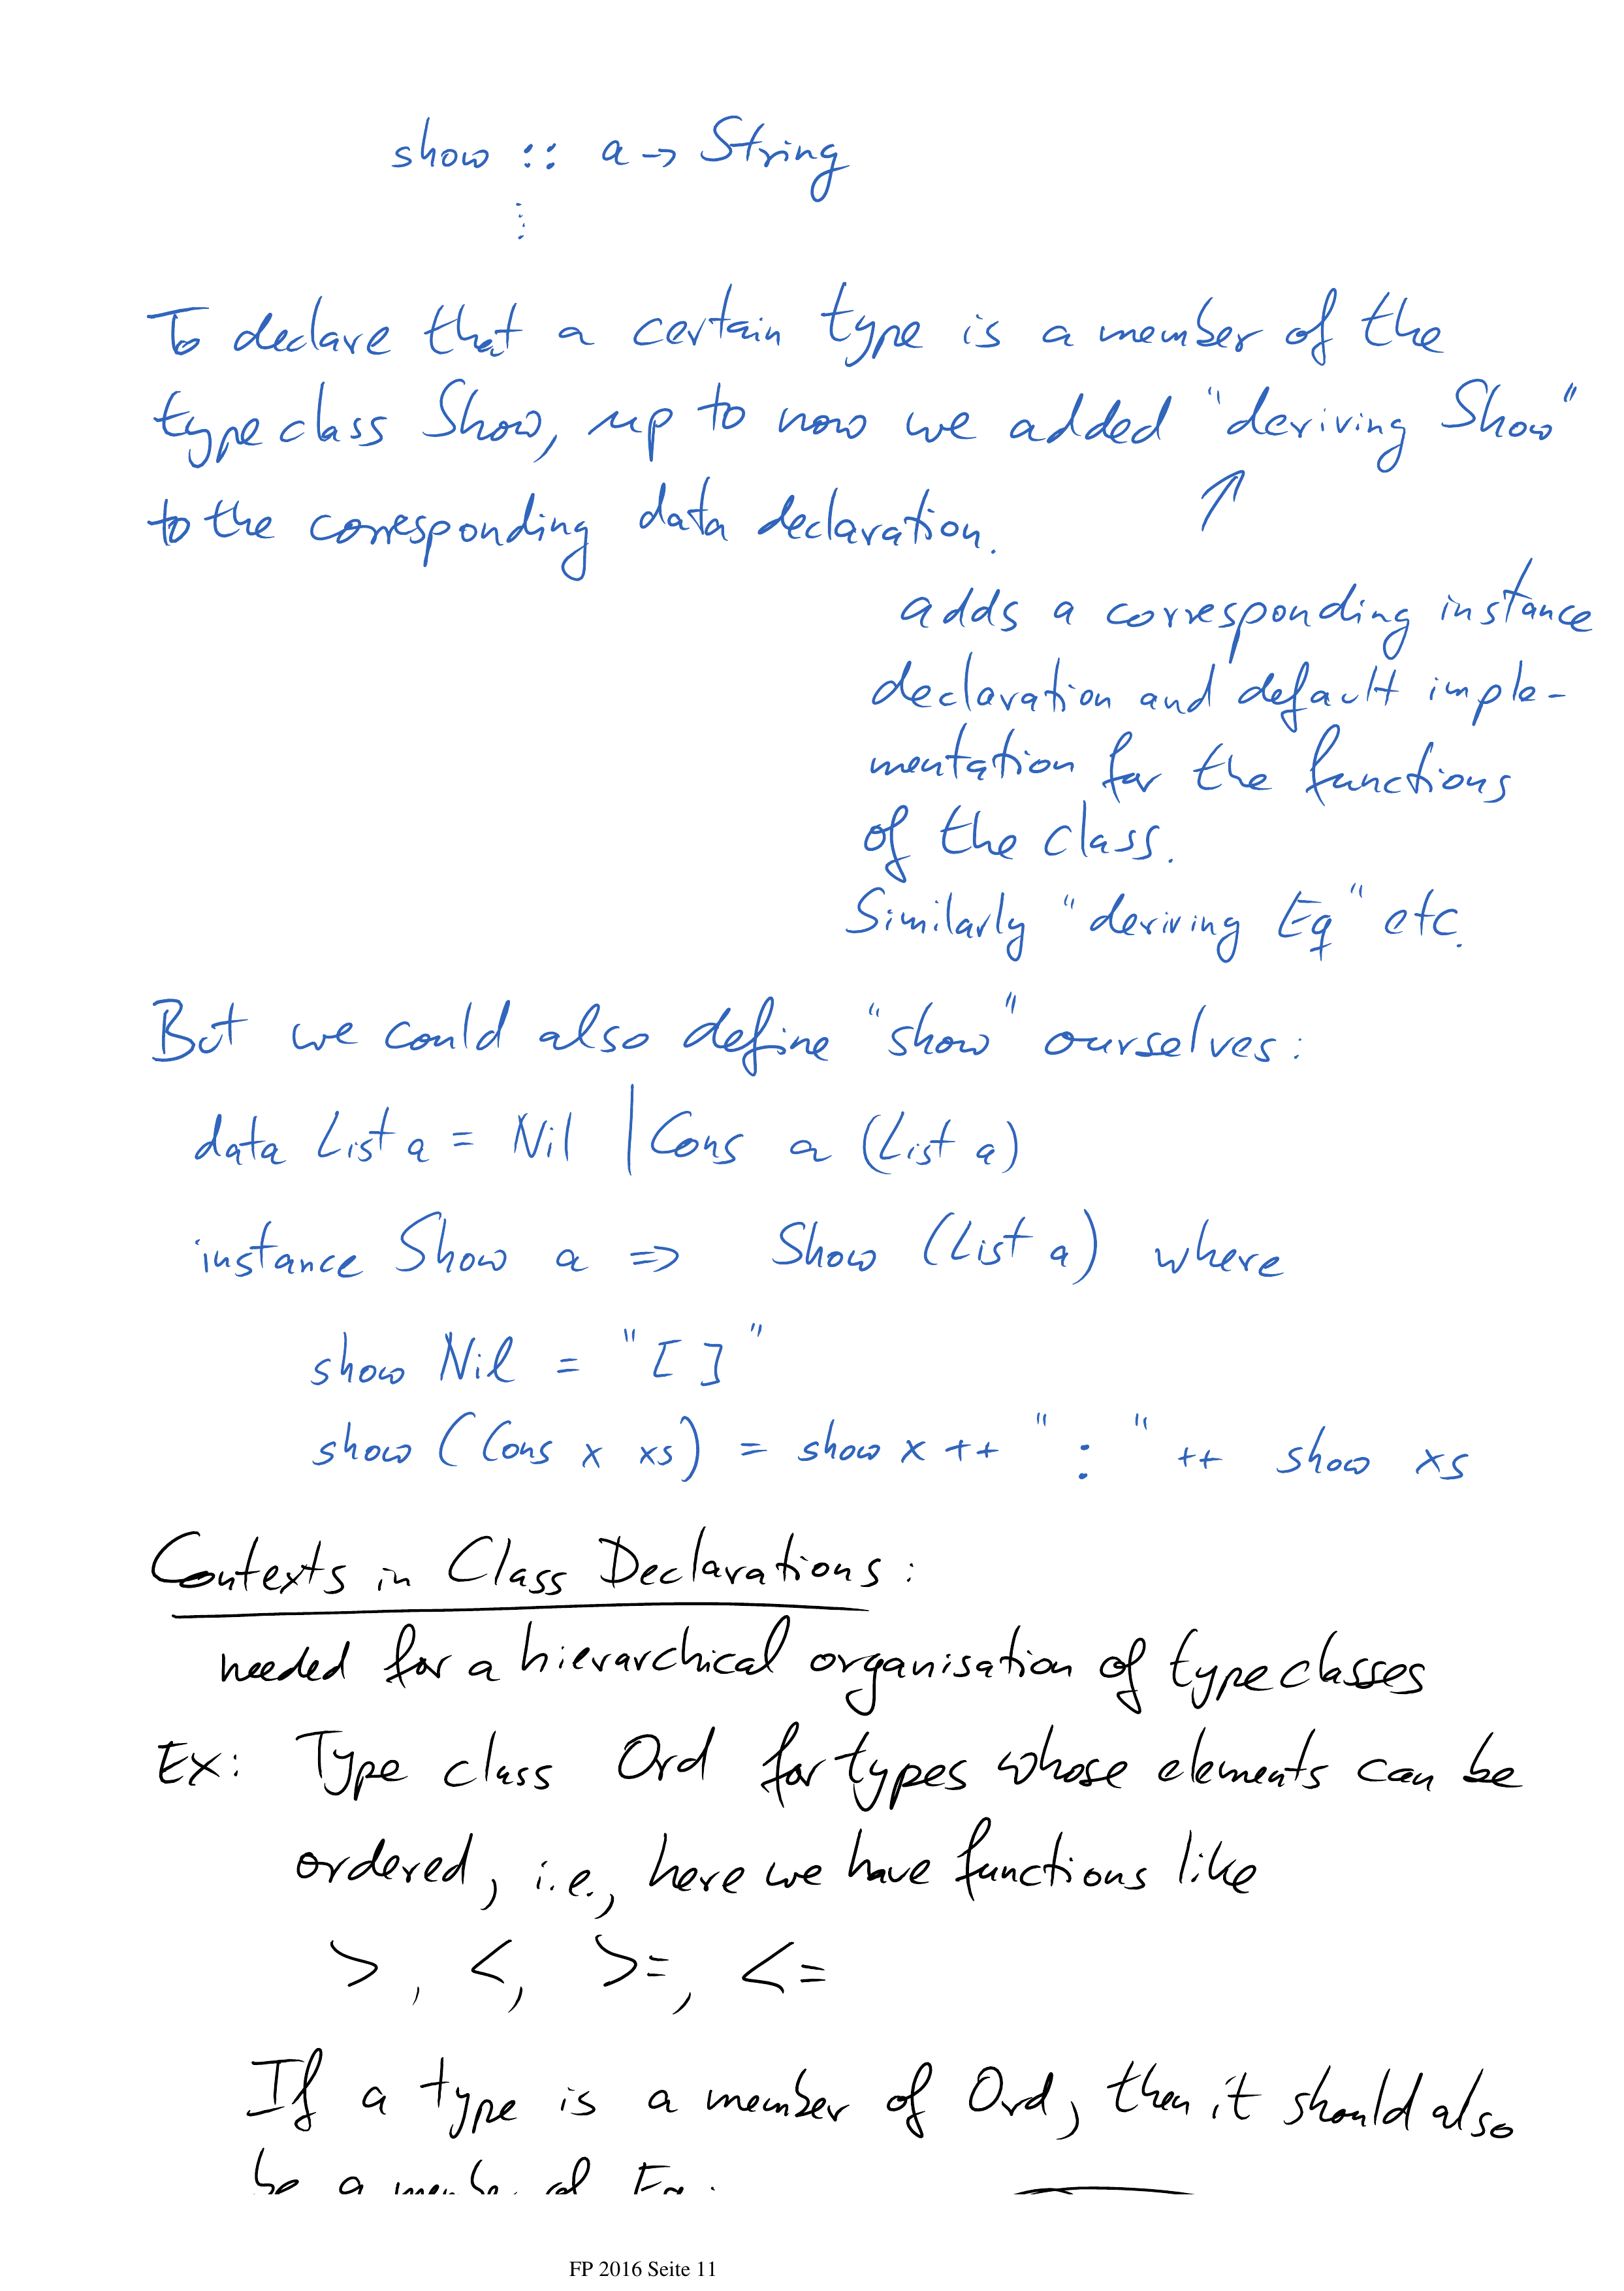 show :: a -> String
⋮
To declare that a certain type is a member of the
type class Show, up to now we added "deriving Show"
to the corresponding data declaration.
↑
adds a corresponding instance
declaration and default imple-
mentation for the functions
of the class.
Similarly "deriving Eq" etc.
But we could also define "show" ourselves:
data List a = Nil | Cons a (List a)
instance Show a => Show (List a) where
show Nil = "[ ]"
show (Cons x xs) = show x ++ " : " ++ show xs
Contexts in Class Declarations:
needed for a hierarchical organisation of type classes
Ex: Type class Ord for types whose elements can be
ordered, i.e., here we have functions like
>, <, >=, <=
If a type is a member of Ord, then it should also
be a member of Eq.
FP 2016 Seite 11